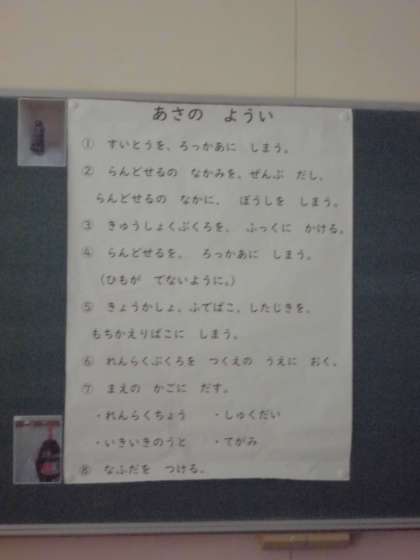 あさの ようい
① すいとうを、ろっかあに しまう。
② らんどせるの なかみを、ぜんぶ だし、
らんどせるの なかに、 ぼうしを しまう。
③ きゅうしょくぶくろを、 ふっくに かける。
④ らんどせるを、 ろっかあに しまう。
(ひもが でないように。)
⑤ きょうかしょ、ふでばこ、したじきを、
もちかえりばこに しまう。
⑥ れんらくぶくろを つくえの うえに おく。
⑦ まえの かごに だす。
・れんらくちょう ・しゅくだい
・いきいきのうと ・てがみ
⑧ なふだを つける。